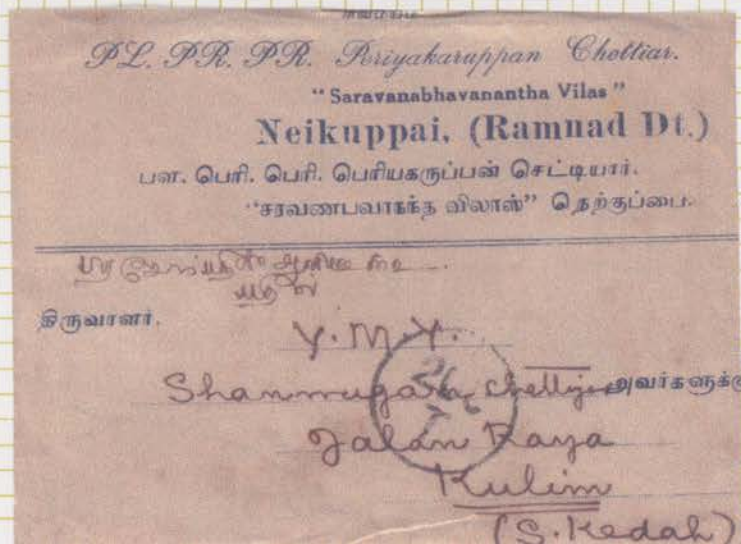 PL. PR. PR. Periyakaruppan Chettiar.
"Saravanabhavanantha Vilas"
Neikuppai, (Ramnad Dt.)
பள. பெரி. பெரி. பெரியகருப்பன் செட்டியார்.
"சரவணபவாநந்த விலாஸ்" நெற்குப்பை.
திருவாளர்.
V. M. Y.
Shanmugara Chettiar அவர்களுக்கு
Jalan Raya
Kulim
(S. Kedah)